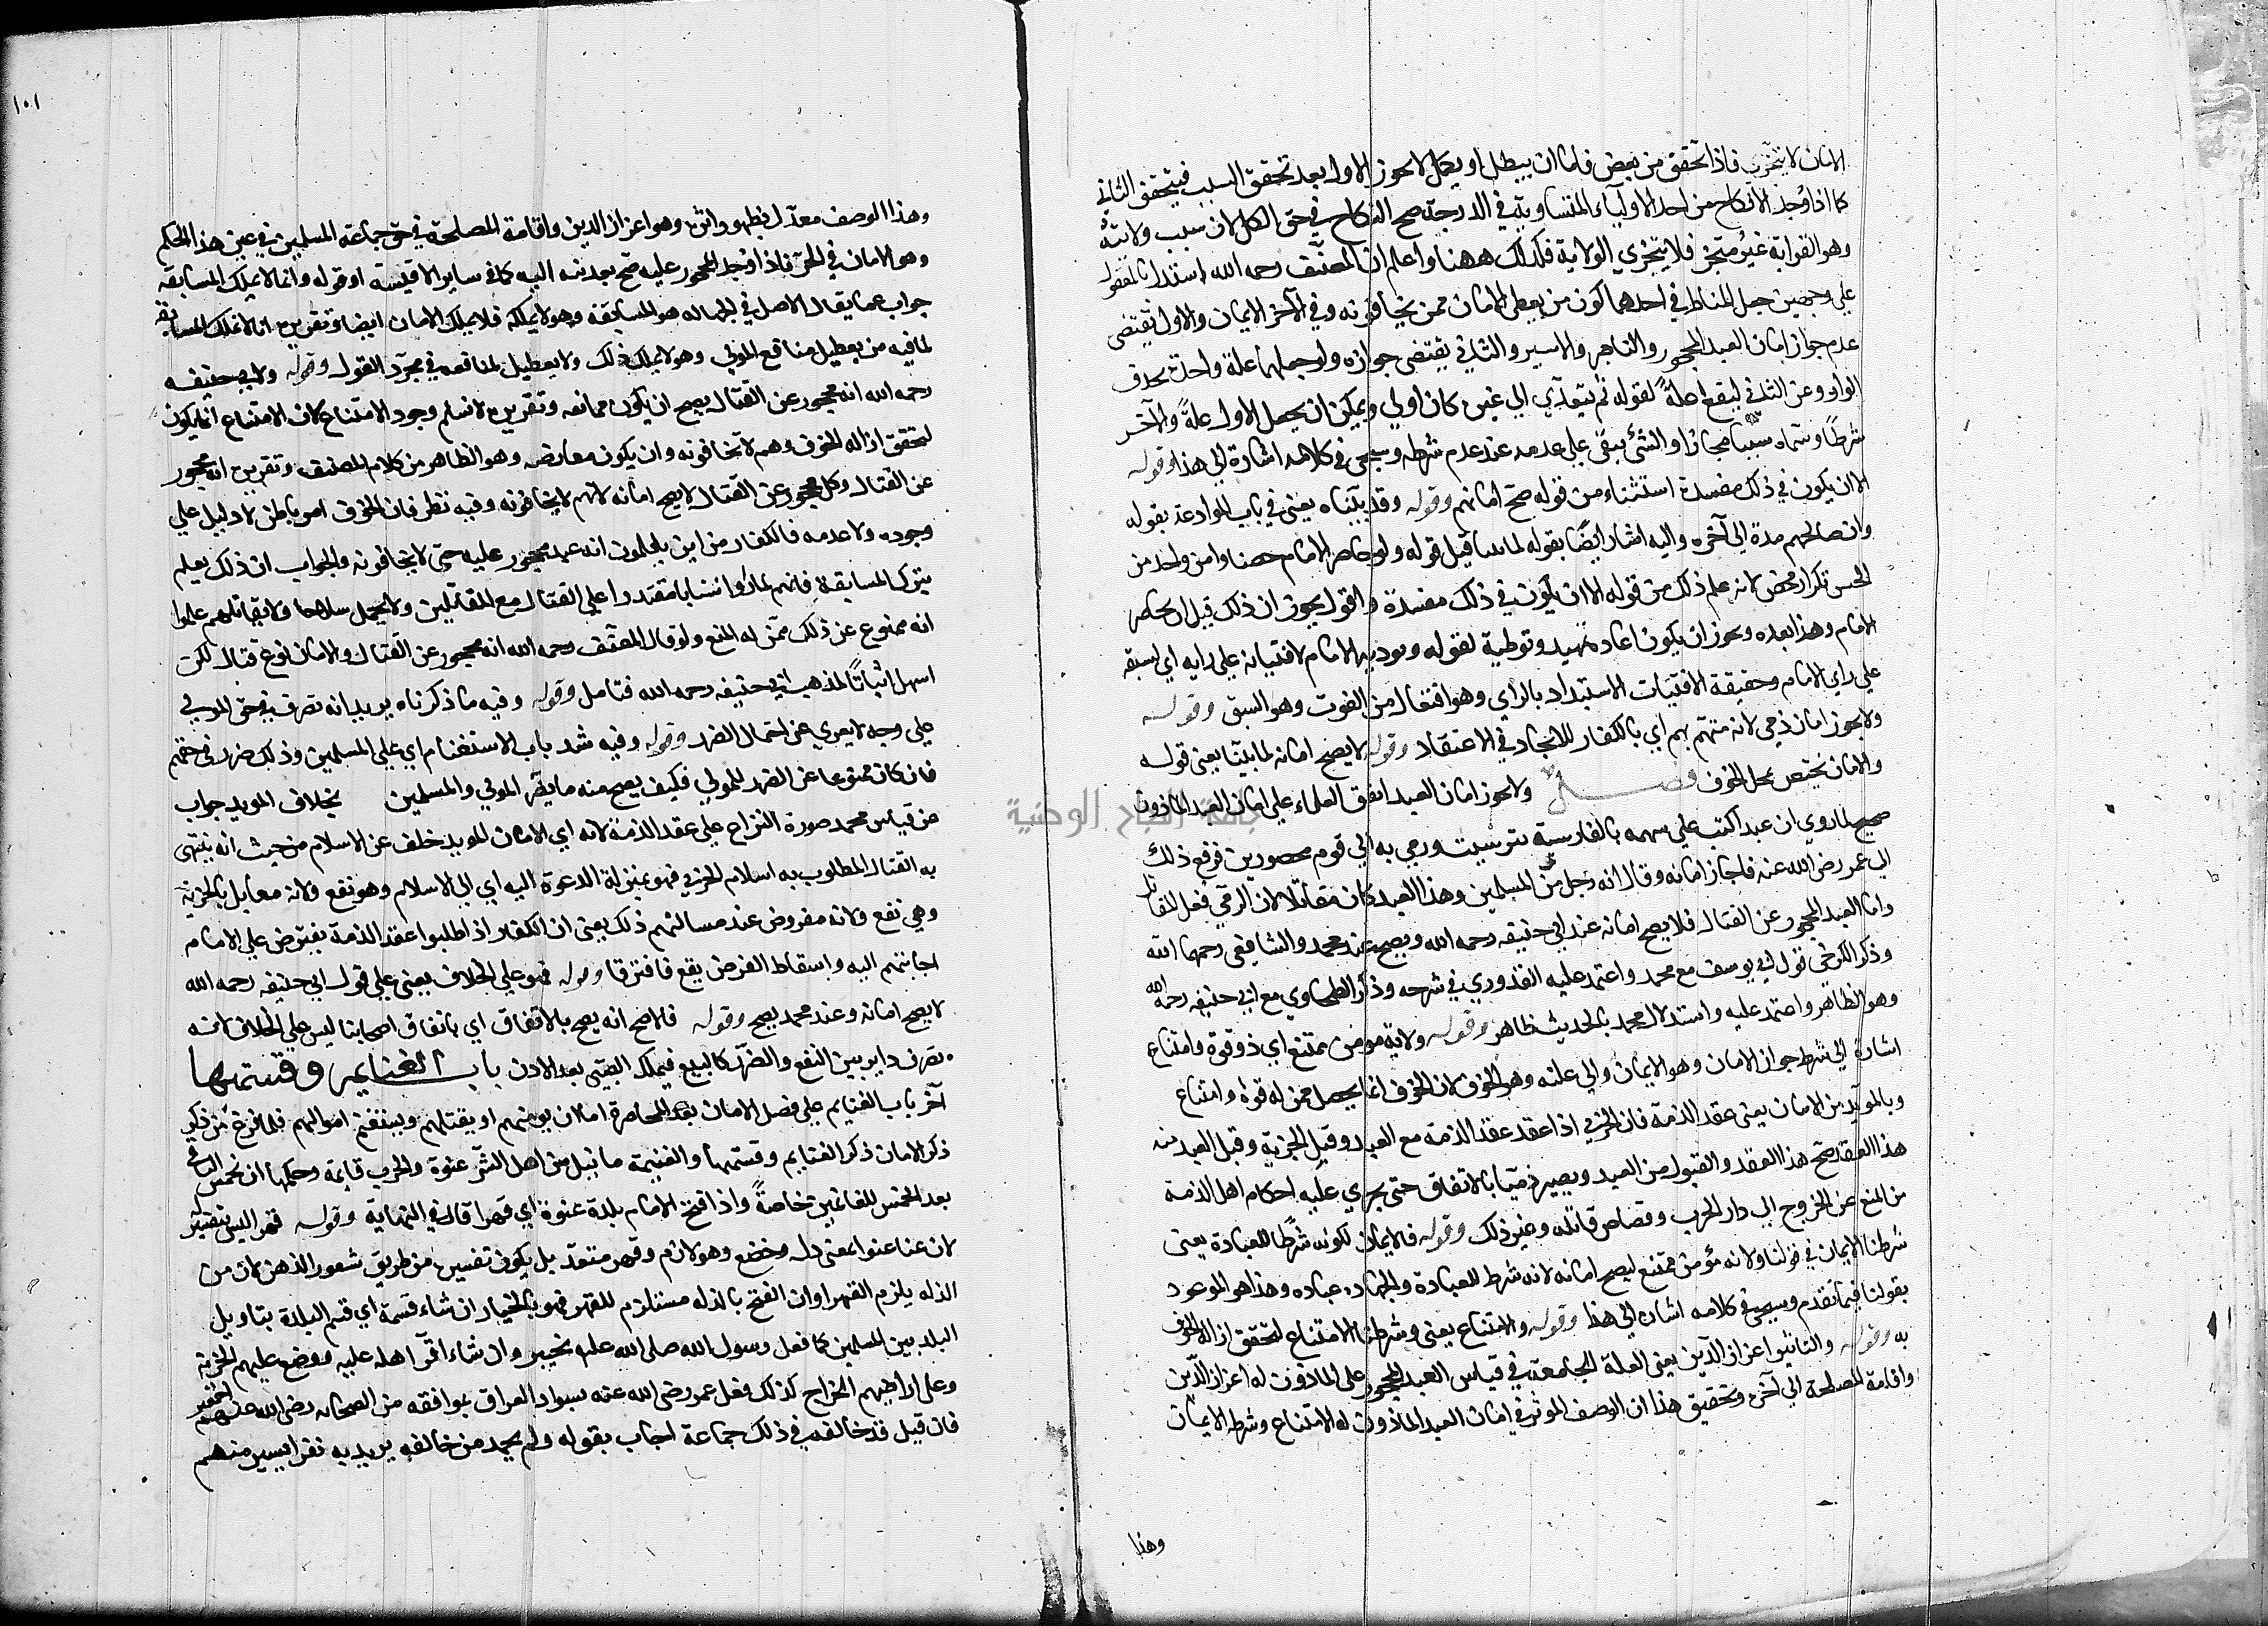 الامان لا يتجزى فاذا تحقق من بعض فاما ان يبطل او يكمل لا يجوز الاول بعد تحقق السبب فيتحقق الثاني
كما اذا وجد الانكاح من احد الاولياء المتساوية في الدرجة صح النكاح في حق الكل لان سبب ولايته
وهو القرابة غير متجز فلا يتجزى الولاية فكذلك ههنا واعلم ان المصنف رحمه الله استدل بالمعقول
على وجهين جعل المناط في احدهما كون من يعطى الامان ممن يخافونه وفي الآخر الايمان والاول يقتضى
عدم جواز امان العبد المحجور والتاجر والاسير والثاني يقتضى جوازه ولو جعلهما علة واحدة بحذف
الواو وعن الثاني ليقع علة لقوله ثم يتعدى الى غيره كان اولى ويمكن ان يجعل الاول علة والآخر
شرطا وسماه سببا مجازا والشئ ينتفى على عدمه عند عدم شرطه وسيجى في كلامه اشارة الى هذا وقوله
الا ان يكون في ذلك مفسدة استثناء من قوله صح امانهم وقوله وقد بيناه يعنى في باب الموادعة بقوله
وان صالحهم مدة الى آخره واليه اشار ايضا بقوله لما بينا قيل قوله ولو حاصر الامام حصنا وامن واحد من
الجيش تكرار محض لانه علم ذلك من قوله الا ان يكون في ذلك مفسدة والقول يجوز ان ذلك قبل ان يحاصر
الامام وهذا بعده ويجوز ان يكون اعاده تمهيدا وتوطية لقوله ويودبه الامام لافتياته على رايه اي لسبقه
على راى الامام وحقيقة الافتيات الاستبداد بالراي وهو افتعال من الفوت وهو السبق وقوله
ولا يجوز امان ذمي لانه متهم بهم اي بالكفار للاتحاد في الاعتقاد وقوله لا يصح امانه لما بينا يعنى قوله
والامان يختص بمحل الخوف فصل ولا يجوز امان العبد اتفق العلماء على امان العبد الماذون
صحيح لما روي ان عبدا كتب على سهمه بالفارسية مترسيت ورمى به الى قوم محصورين فرفع ذلك
الى عمر رضى الله عنه فاجاز امانه وقال انه رجل من المسلمين وهذا العبد كان مقاتلا لان الرمي فعل المقاتل
واما العبد المحجور عن القتال فلا يصح امانه عند ابي حنيفه رحمه الله ويصح عند محمد والشافعى رحمهما الله
وذكر الكرخي قول ابي يوسف مع محمد واعتمد عليه القدوري في شرحه وذكر الطحاوي مع ابي حنيفه رحمه الله
وهو الظاهر واعتمد عليه واستدلال محمد بالحديث ظاهر وقوله ولانه مومن ممتنع اي ذو قوة وامتناع
اشارة الى شرط جواز الامان وهو الايمان والى علته وهو الخوف لان الخوف انما يحصل ممن له قوة وامتناع
وبالمويد من الامان يعنى عقد الذمة فان الحربي اذا عقد عقد الذمة مع العبد وقبل الجزية وقبل العبد منه
هذا العقد صح هذا العقد والقبول من العبد ويصير ذميا بالاتفاق حتى يجري عليه احكام اهل الذمة
من المنع عن الخروج الى دار الحرب وقصاص قاتله وغير ذلك وقوله فالايمان لكونه شرطا للعبادة يعنى
شرطنا الايمان في قولنا ولانه مؤمن ممتنع ليصح امانه لانه شرط للعبادة والجهاد عباده وهذا هو الموعود
بقولنا فيما تقدم وسيجى في كلامه اشارة الى هذا وقوله والامتناع يعنى وشرطنا الامتناع لتحقق ازالة الخوف
به وقوله والتاثير اعزاز الدين يعنى العلة الجامعة في قياس العبد المحجور على الماذون له اعزاز الدين
واقامة المصلحة الى آخره وتحقيق هذا ان الوصف الموثر في امان العبد الماذون له الامتناع وشرطه الايمان
وهذا
١٠١
وهذا الوصف معدل بظهور اثره وهو اعزاز الدين واقامة المصلحة في حق جماعة المسلمين في عين هذا الحكم
وهو الامان في الحر فاذا وجد المحجور عليه صح تعديته اليه كما في ساير الاقيسة او قوله وانما لا يملك المسابقة
جواب عما يقال الاصل في الجهاد هو المسابقة وهو لا يملكه فلا يملك الامان ايضا وتقريره انه لا يملك المسايفة
لما فيه من تعطيل منافع المولى وهو لا يملك ذلك ولا تعطيل لمنافعه في مجرد القول وقوله ولابي حنيفه
رحمه الله انه محجور عن القتال يصح ان يكون ممانعه وتقريره لا نسلم وجود الامتناع لان الامتناع انما يكون
لتحقق ازاله الخوف وهم لا يخافونه وان يكون معارضه وهو الظاهر من كلام المصنف وتقريره انه محجور
عن القتال وكل محجور عن القتال لا يصح امانه لانهم لا يخافونه وفيه نظر فان الخوف امر باطن لا دليل على
وجوده ولا عدمه فالكفار من اين يعلمون انه عبد محجور عليه حتى لا يخافونه والجواب ان ذلك يعلم
بترك المسابقة فانهم لما راوا شابا مقتدرا على القتال مع المقاتلين ولا يحمل سلاحا ولا يقاتلهم علموا
انه ممنوع عن ذلك ممن له المنع ولو قال المصنف رحمه الله انه محجور عن القتال والامان نوع قتال لكن
اسهل اثباتا لمذهب ابي حنيفه رحمه الله فتامل وقوله وفيه ما ذكرناه يريد انه تصرف في حق المولى
على وجه لا يعرى عن احتمال الضرر وقوله وفيه سد باب الاستغنام اي على المسلمين وذلك ضرر في حقهم
فان كان ممنوعا عن الضرر للمولى فكيف يصح منه ما يضر المولى والمسلمين بخلاف المويد جواب
عن قياس محمد صورة النزاع على عقد الذمة لانه اي الامان المويد خلف عن الاسلام من حيث انه ينتهى
به القتال المطلوب به اسلام الحربي فهو بمنزلة الدعوة اليه اي الى الاسلام وهو نفع ولانه مقابل بالجزية
وهى نفع ولانه مفروض عند مسالتهم ذلك يعنى ان الكفار اذا طلبوا عقد الذمة يفترض على الامام
اجابتهم اليه واسقاط الفرض نفع فافترقا وقوله فهو على الخلاف يعنى على قول ابي حنيفه رحمه الله
لا يصح امانه وعند محمد يصح وقوله فالاصح انه يصح بالاتفاق اي باتفاق اصحابنا ليس على الخلاف لانه
تصرف داير بين النفع والضرر كالبيع فيملك الصبى بعد الاذن باب الغنايم وقسمتها
آخر باب الغنايم على فصل الامان بعد المحاصرة اما ان يومنهم او يقتلهم ويستغنم اموالهم فلما فرغ من ذكر
ذكر الامان ذكر الغنايم وقسمتها والغنيمة ما نيل من اهل الشرك عنوة والحرب قايمة وحكمها ان تخمس الباقى
بعد الخمس للغانمين خاصة واذا افتح الامام بلدة عنوة اي قهرا قال في النهاية وقوله قهرا ليس بتفسير له
لان عنا عنوا بمعنى ذل وخضع وهو لازم وقهر متعد بل يكون تفسيره من طريق شعور الذهن لان من
الذله يلزم القهر او ان الفتح بالذله مستلزم للقهر فهو بالخيار ان شاء قسمه اي قسم البلدة بتاويل
البلد بين المسلمين كما فعل رسول الله صلى الله عليه بخيبر وان شاء اقر آهله عليه ووضع عليهم الجزية
وعلى اراضيهم الخراج كذلك فعل عمر رضى الله عنه بسواد العراق بموافقه من الصحابه رضى الله عنهم
فان قيل قد خالفه في ذلك جماعة اجاب بقوله ولم يحمد من خالفه يريد به نفرا يسيرا منهم